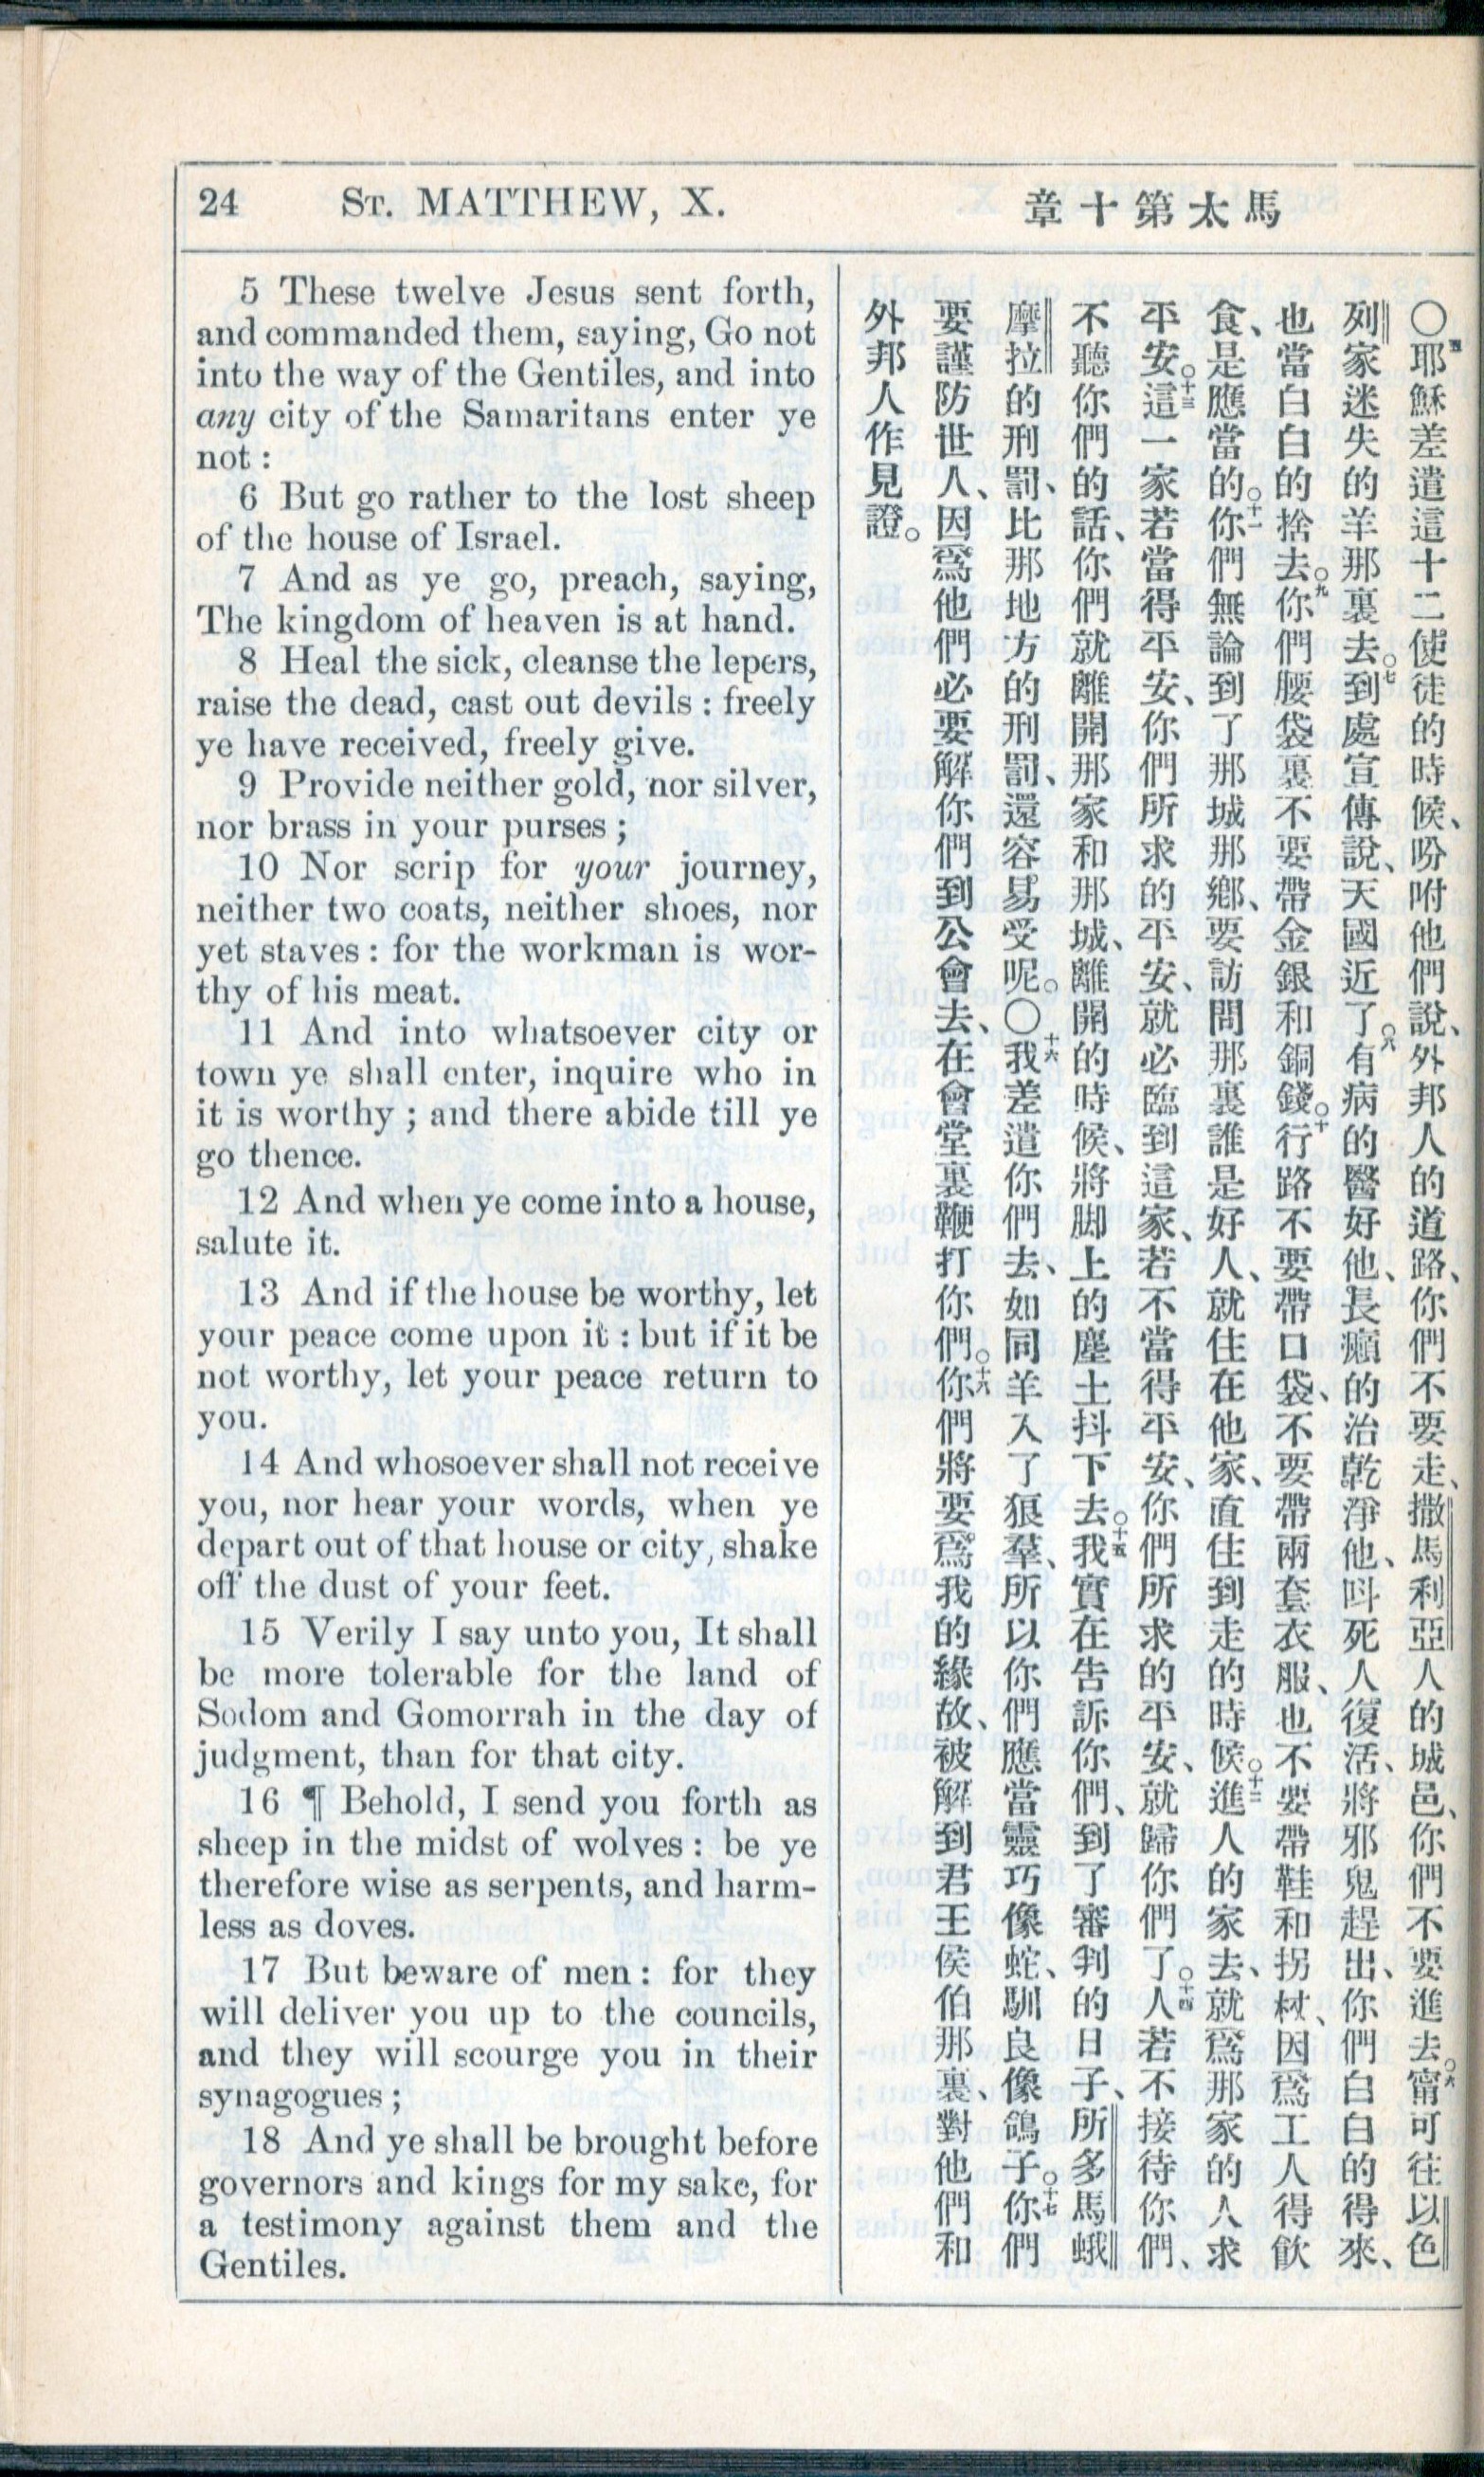 24 ST. MATTHEW, X.
馬太第十章
5 These twelve Jesus sent forth,
and commanded them, saying, Go not
into the way of the Gentiles, and into
any city of the Samaritans enter ye
not :
6 But go rather to the lost sheep
of the house of Israel.
7 And as ye go, preach, saying,
The kingdom of heaven is at hand.
8 Heal the sick, cleanse the lepers,
raise the dead, cast out devils : freely
ye have received, freely give.
9 Provide neither gold, nor silver,
nor brass in your purses ;
10 Nor scrip for your journey,
neither two coats, neither shoes, nor
yet staves : for the workman is wor-
thy of his meat.
11 And into whatsoever city or
town ye shall enter, inquire who in
it is worthy ; and there abide till ye
go thence.
12 And when ye come into a house,
salute it.
13 And if the house be worthy, let
your peace come upon it : but if it be
not worthy, let your peace return to
you.
14 And whosoever shall not receive
you, nor hear your words, when ye
depart out of that house or city, shake
off the dust of your feet.
15 Verily I say unto you, It shall
be more tolerable for the land of
Sodom and Gomorrah in the day of
judgment, than for that city.
16 ¶ Behold, I send you forth as
sheep in the midst of wolves : be ye
therefore wise as serpents, and harm-
less as doves.
17 But beware of men : for they
will deliver you up to the councils,
and they will scourge you in their
synagogues ;
18 And ye shall be brought before
governors and kings for my sake, for
a testimony against them and the
Gentiles.
〇耶穌差遣這十二使徒的時候、吩咐他們說、外邦人的道路、你們不要走、撒馬利亞人的城邑、你們不要進去。六甯可往以色
列家迷失的羊那裏去。七到處宣傳說、天國近了。八有病的醫好他、長癩的治乾淨他、呌死人復活、將邪鬼趕出、你們白白的得來、
也當白白的捨去。九你們腰袋裏不要帶金銀和銅錢。十行路不要帶口袋、不要帶兩套衣服、也不要帶鞋和拐杖、因爲工人得飲
食、是應當的。十一你們無論到了那城那鄉、要訪問那裏誰是好人、就住在他家、直住到走的時候。十二進人的家去、就爲那家的人求
平安。十三這一家若當得平安、你們所求的平安、就必臨到這家、若不當得平安、你們所求的平安、就歸你們了。十四人若不接待你們、
不聽你們的話、你們就離開那家和那城、離開的時候、將脚上的塵土抖下去。十五我實在告訴你們、到了審判的日子、所多馬蛾
摩拉的刑罰、比那地方的刑罰、還容易受呢。〇十六我差遣你們去、如同羊入了狼羣、所以你們應當靈巧像蛇、馴良像鴿子。十七你們
要謹防世人、因爲他們必要解你們到公會去、在會堂裏鞭打你們。十八你們將要爲我的緣故、被解到君王侯伯那裏、對他們和
外邦人作見證。